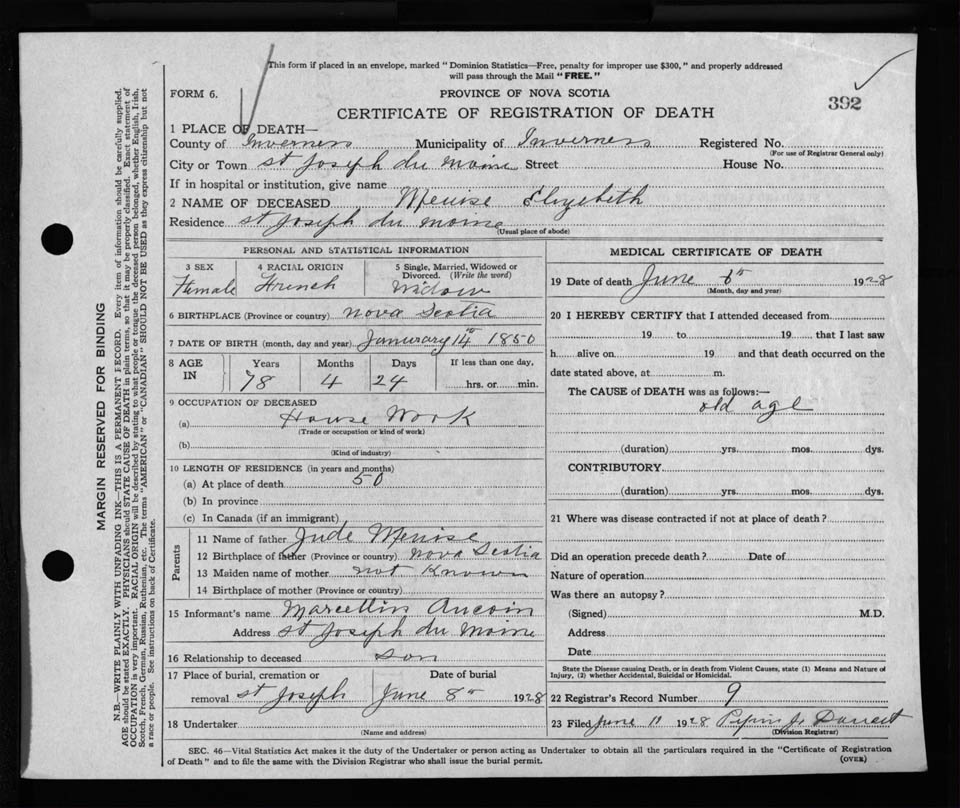 This form if placed in an envelope, marked "Dominion Statistics—Free, penalty for improper use $300," and properly addressed
will pass through the Mail "FREE."
FORM 6. PROVINCE OF NOVA SCOTIA
CERTIFICATE OF REGISTRATION OF DEATH 392
1 PLACE OF DEATH—
County of Inverness Municipality of Inverness Registered No.
(For use of Registrar General only)
City or Town St Joseph du Moine Street House No.
If in hospital or institution, give name
2 NAME OF DECEASED Meuise Elizebeth
Residence St Joseph du Moine
(Usual place of abode)
PERSONAL AND STATISTICAL INFORMATION
3 SEX 4 RACIAL ORIGIN 5 Single, Married, Widowed or
Divorced. (Write the word)
Female French Widow
6 BIRTHPLACE (Province or country) Nova Scotia
7 DATE OF BIRTH (month, day and year) January 14th 1850
8 AGE IN Years Months Days If less than one day,
78 4 24 hrs. or min.
9 OCCUPATION OF DECEASED
(a) House Work
(Trade or occupation or kind of work)
(b)
(Kind of industry)
10 LENGTH OF RESIDENCE (in years and months)
(a) At place of death 50
(b) In province
(c) In Canada (if an immigrant)
Parents
11 Name of father Jude Meuise
12 Birthplace of father (Province or country) Nova Scotia
13 Maiden name of mother not Known
14 Birthplace of mother (Province or country)
15 Informant's name Marcellin Aucoin
Address St Joseph du Moine
16 Relationship to deceased son
17 Place of burial, cremation or Date of burial
removal St Joseph June 8th 1928
18 Undertaker
(Name and address)
MEDICAL CERTIFICATE OF DEATH
19 Date of death June 6th 1928
(Month, day and year)
20 I HEREBY CERTIFY that I attended deceased from
19 to 19 that I last saw
h alive on 19 and that death occurred on the
date stated above, at m.
The CAUSE of DEATH was as follows:—
old age
(duration) yrs. mos. dys.
CONTRIBUTORY
(duration) yrs. mos. dys.
21 Where was disease contracted if not at place of death?
Did an operation precede death? Date of
Nature of operation
Was there an autopsy?
(Signed) M.D.
Address
Date
State the Disease causing Death, or in death from Violent Causes, state (1) Means and Nature of
Injury, (2) whether Accidental, Suicidal or Homicidal.
22 Registrar's Record Number 9
23 Filed June 11 1928
(Division Registrar)
SEC. 46—Vital Statistics Act makes it the duty of the Undertaker or person acting as Undertaker to obtain all the particulars required in the "Certificate of Registration
of Death" and to file the same with the Division Registrar who shall issue the burial permit. (OVER)
MARGIN RESERVED FOR BINDING
N.B.—WRITE PLAINLY WITH UNFADING INK—THIS IS A PERMANENT RECORD. Every item of information should be carefully supplied.
AGE should be stated EXACTLY. PHYSICIANS should STATE CAUSE OF DEATH in plain terms, so that it may be properly classified. Exact statement of
OCCUPATION is very important. RACIAL ORIGIN will be described by stating to what people or tongue the deceased person belonged, whether English, Irish,
Scotch, French, German, Russian, Ruthenian, etc. The terms "AMERICAN" or "CANADIAN" SHOULD NOT BE USED as they express citizenship but not
a race or people. See instructions on back of Certificate.